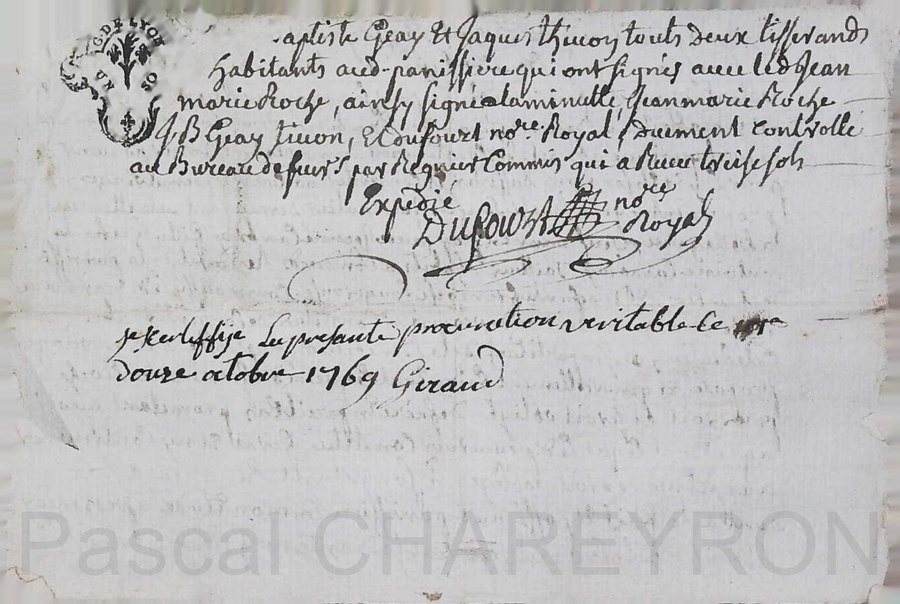 G. DE LYON
.aptiste Geay Et Jaques thivon touts deux tisserands
habitants aud. panissiere qui ont signés avec led Jean
marie Roche, ainsy signé a la minutte, Jeanmarie Roche
J B Geay tivon, Et Dufourt no.re Royal, duement Controlle
au Bureau de feurs par Regnier Commis qui a Receu treise sols
Expedié
Dufourt no.re Royal
je sertiffije la presante procuration veritable ce
douze octobre 1769 Giraud
Pascal CHAREYRON